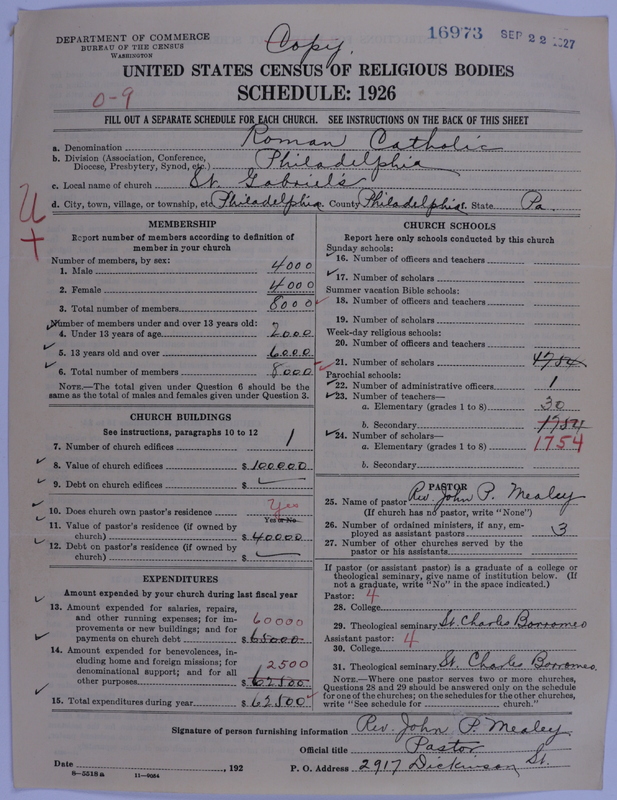 DEPARTMENT OF COMMERCE
BUREAU OF THE CENSUS
WASHINGTON
Copy.
16973 SEP 22 1927
UNITED STATES CENSUS OF RELIGIOUS BODIES
SCHEDULE: 1926
0-9
FILL OUT A SEPARATE SCHEDULE FOR EACH CHURCH. SEE INSTRUCTIONS ON THE BACK OF THIS SHEET
a. Denomination Roman Catholic
b. Division (Association, Conference, Diocese, Presbytery, Synod, etc.) Philadelphia
c. Local name of church St. Gabriel's
d. City, town, village, or township, etc. Philadelphia County Philadelphia State Pa.
MEMBERSHIP
Report number of members according to definition of
member in your church
Number of members, by sex:
1. Male 4000
2. Female 4000
3. Total number of members 8000
Number of members under and over 13 years old:
4. Under 13 years of age 2000
5. 13 years old and over 6000
6. Total number of members 8000
NOTE.—The total given under Question 6 should be the
same as the total of males and females given under Question 3.
CHURCH BUILDINGS
See instructions, paragraphs 10 to 12
7. Number of church edifices 1
8. Value of church edifices $ 100000
9. Debt on church edifices $
10. Does church own pastor's residence Yes
Yes or No
11. Value of pastor's residence (if owned by
church) $ 40000
12. Debt on pastor's residence (if owned by
church) $
EXPENDITURES
Amount expended by your church during last fiscal year
13. Amount expended for salaries, repairs,
and other running expenses; for im- 60000
provements or new buildings; and for
payments on church debt $ 65000
14. Amount expended for benevolences, in-
cluding home and foreign missions; for
denominational support; and for all 2500
other purposes $ 62500
15. Total expenditures during year $ 62500
CHURCH SCHOOLS
Report here only schools conducted by this church
Sunday schools:
16. Number of officers and teachers
17. Number of scholars
Summer vacation Bible schools:
18. Number of officers and teachers
19. Number of scholars
Week-day religious schools:
20. Number of officers and teachers
21. Number of scholars 1754
Parochial schools:
22. Number of administrative officers 1
23. Number of teachers—
a. Elementary (grades 1 to 8) 30
b. Secondary 1754
24. Number of scholars—
a. Elementary (grades 1 to 8) 1754
b. Secondary
PASTOR
25. Name of pastor Rev. John P. Mealey
(If church has no pastor, write "None")
26. Number of ordained ministers, if any, em-
ployed as assistant pastors 3
27. Number of other churches served by the
pastor or his assistants
If pastor (or assistant pastor) is a graduate of a college or
theological seminary, give name of institution below. (If
not a graduate, write "No" in the space indicated.)
Pastor: 4
28. College
29. Theological seminary St. Charles Borromeo
Assistant pastor: 4
30. College
31. Theological seminary St. Charles Borromeo.
NOTE.—Where one pastor serves two or more churches,
Questions 28 and 29 should be answered only on the schedule
for one of the churches; on the schedules for the other churches,
write "See schedule for church."
Signature of person furnishing information Rev. John P. Mealey
Official title Pastor
Date , 192 P. O. Address 2917 Dickinson St.
8—5518a 11—9064